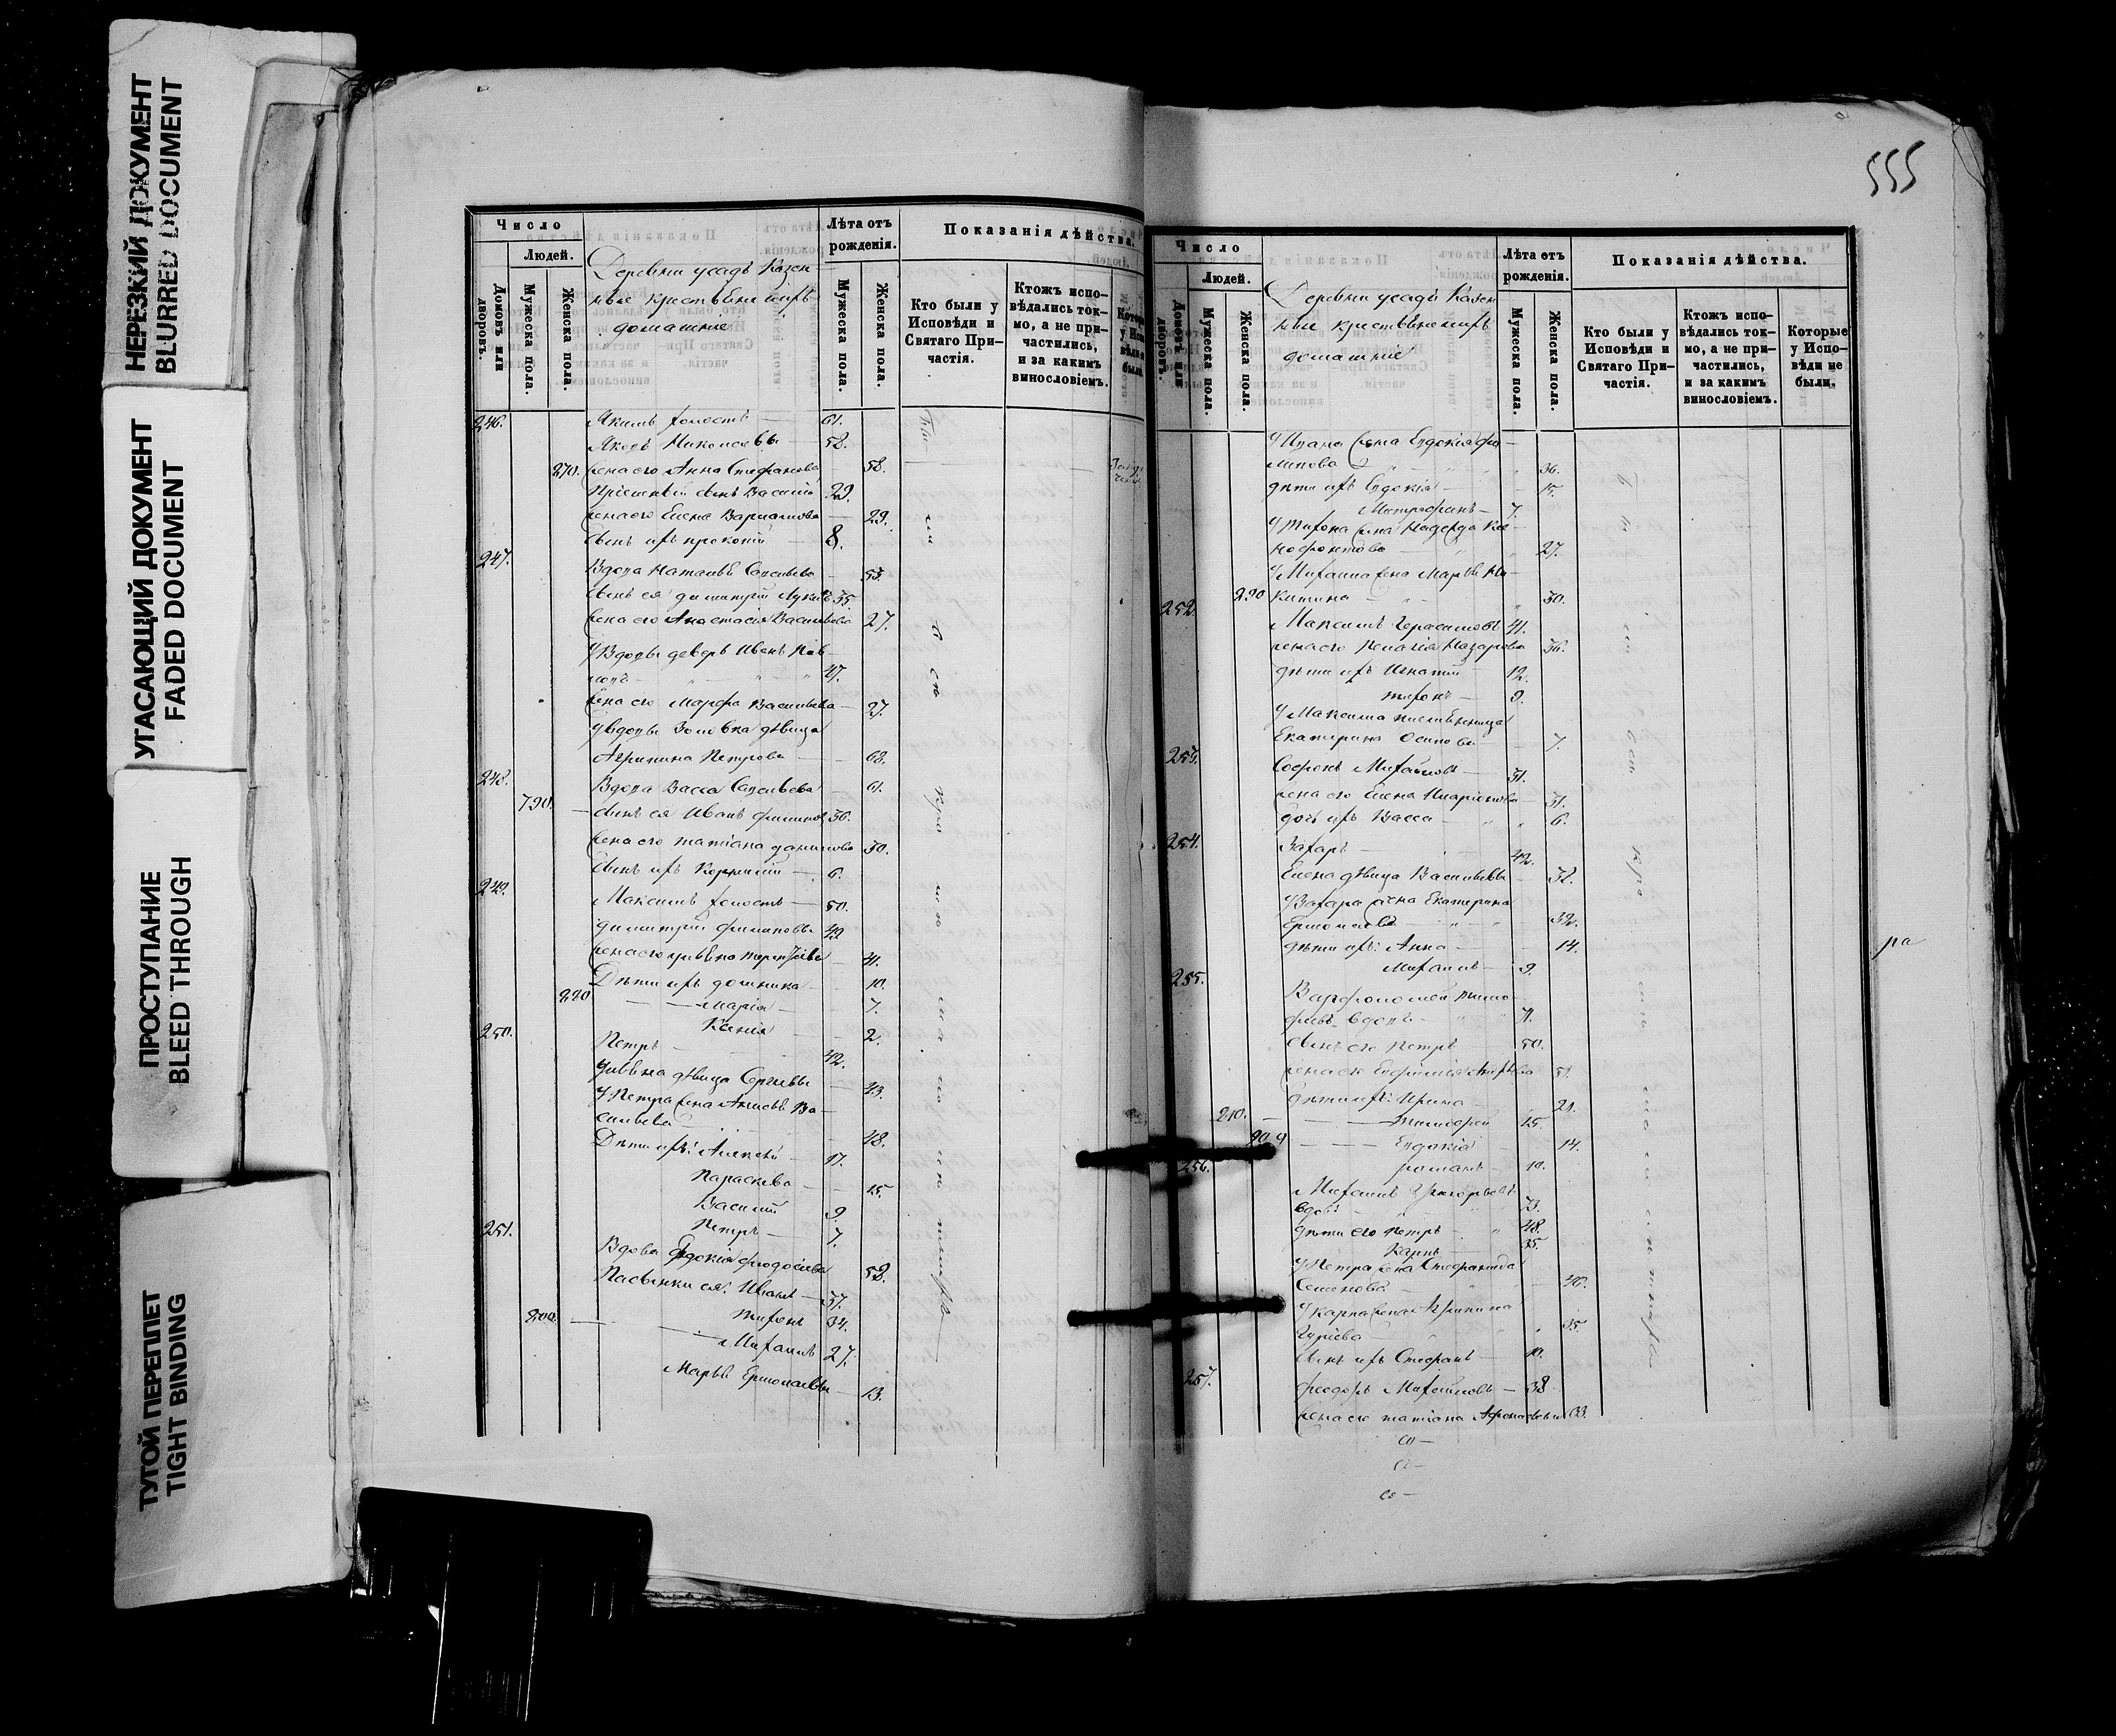 НЕРЕЗКИЙ ДОКУМЕНТ
BLURRED DOCUMENT
УГАСАЮЩИЙ ДОКУМЕНТ
FADED DOCUMENT
ПРОСТУПАНИЕ
BLEED THROUGH
ТУГОЙ ПЕРЕПЛЕТ
TIGHT BINDING
Число
Людей.
Домовъ или дворовъ.
Мужеска пола.
Женска пола.
Деревни усадъ Казен-
ные крестьяне ихъ
домашніе
Лѣта отъ рожденія.
Мужеска пола.
Женска пола.
Показанія дѣйства.
Кто были у Исповѣди и Святаго Причастія.
Ктожъ исповѣдались токмо, а не причастились, и за какимъ винословіемъ.
246. Якимъ холостъ — 61.
Яковъ Николаевы — 52.
270. жена его Анна Стефанова — 58.
Пріемный сынъ Василій 29.
жена его Елена Варламова — 29.
сынъ ихъ Прокопій — 8.
247. Вдова Наталья Савельева — 53.
сынъ ея Димитрій 35.
жена его Анастасія Васильева 27.
У Вдовы деверь Иванъ Пав-
ловъ — 47.
жена его Марфа Васильева — 27.
У вдовы Золовка дѣвица
Агрипина Петрова — 68.
248. Вдова Васса Савельева 61.
790. — сынъ ея Иванъ Филиповъ 36.
жена его Татіана Данилова 30.
сынъ ихъ Корнилій — 6.
249. Максимъ холостъ — 50.
Димитрій Филиповы 42
жена его Ульяна 41.
Дѣти ихъ Домника — 10.
280 — Марія — 7.
Ксенія — 2.
250. Петръ — 42.
Ульяна дѣвица Сергѣевы — 43.
У Петра жена Акилина Ва-
сильева — 48.
Дѣти ихъ: Алексѣй — 17.
Параскева — 15.
Василій — 9.
Петръ — 7.
251. Вдова Евдокія Феодосіева 58.
Пасынки ея: Иванъ — 37.
800. — Тихонъ 34.
— Михаилъ 27.
Марья Ермолаевы — 13.
555
Число
Людей.
Домовъ или дворовъ.
Мужеска пола.
Женска пола.
Деревни усадъ Казен
ные крестьяне ихъ
домашніе
Лѣта отъ рожденія.
Мужеска пола.
Женска пола.
Показанія дѣйства.
Кто были у Исповѣди и Святаго Причастія.
Ктожъ исповѣдались токмо, а не причастились, и за какимъ винословіемъ.
Которые у Исповѣди не были.
У Ивана жена Евдокія Фи-
липова 36.
дѣти ихъ Евдокія — 15.
Митрофанъ — 7.
У Тихона жена Надежда Ксе-
нофонтова 27.
У Михаила жена Марья Ни-
290 китина 30.
252. Максимъ Герасимовъ 41.
жена его Пелагія Назарова 36.
дѣти ихъ Игнатій 12.
Тихонъ — 9.
У Максима племянница
Екатерина Осипова — 7.
253. Софронъ Михайловъ — 31.
жена его Елена Иларіонова 31.
дочь ихъ Васса — 6.
254. Захаръ — 42.
Елена дѣвица Васильевы 32.
У Захара жена Екатерина
Ермолаева 32.
дѣти ихъ: Анна — 14.
Михаилъ — 9.
255. Варфоломей Тимо-
феевъ вдовъ 71.
сынъ его Петръ — 50.
жена его Евфимія 51.
дѣти ихъ: Ирина — 21.
810. — Тимофей 15.
Евдокія 14.
Романъ 10.
256. Михаилъ Григорьевъ
вдовъ 73.
дѣти его Петръ 48.
Карпъ 35.
У Петра жена Стефанида
Семенова 40.
У Карпа жена Агрипина
Гуріева 35.
сынъ ихъ Стефанъ 10.
257. Феодоръ Михайловъ — 38
жена его Татіана Афанасьева 33.
ра